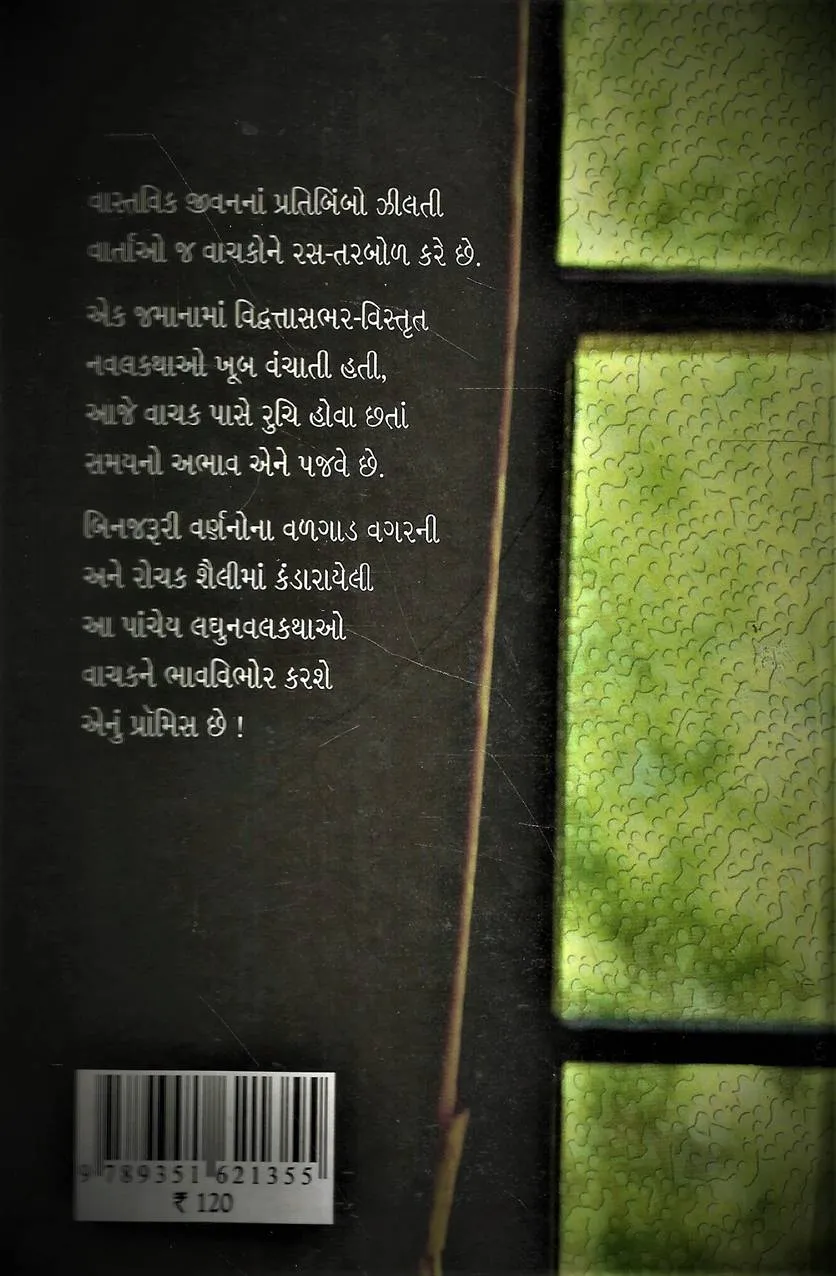 વાસ્તવિક જીવનનાં પ્રતિબિંબો ઝીલતી
વાર્તાઓ જ વાચકોને રસ-તરબોળ કરે છે.
એક જમાનામાં વિદ્વત્તાસભર-વિસ્તૃત
નવલકથાઓ ખૂબ વંચાતી હતી,
આજે વાચક પાસે રુચિ હોવા છતાં
સમયનો અભાવ એને પજવે છે.
બિનજરૂરી વર્ણનોના વળગાડ વગરની
અને રોચક શૈલીમાં કંડારાયેલી
આ પાંચેય લઘુનવલકથાઓ
વાચકને ભાવવિભોર કરશે
એનું પ્રૉમિસ છે !
9 789351 621355
₹ 120